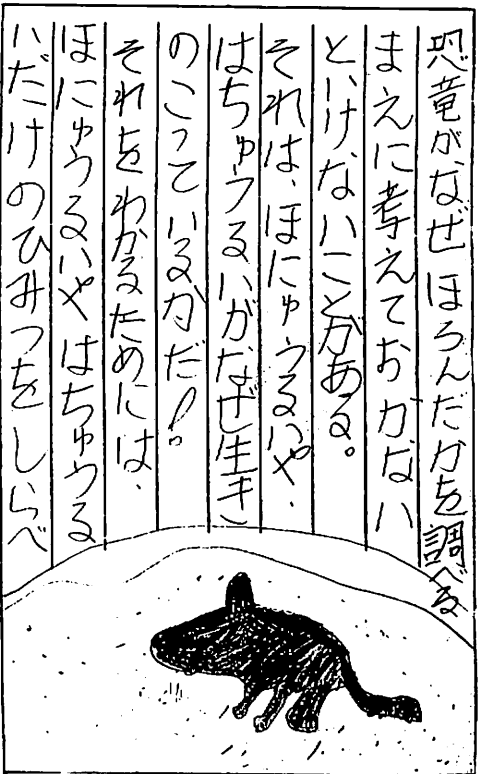 恐竜が、なぜほろんだかを調べる
まえに考えておかない
といけないことがある。
それは、ほにゅうるいや、
はちゅうるいがなぜ生き
のこっているかだ！。
それをわかるためには、
ほにゅうるいやはちゅうる
いだけのひみつをしらべ